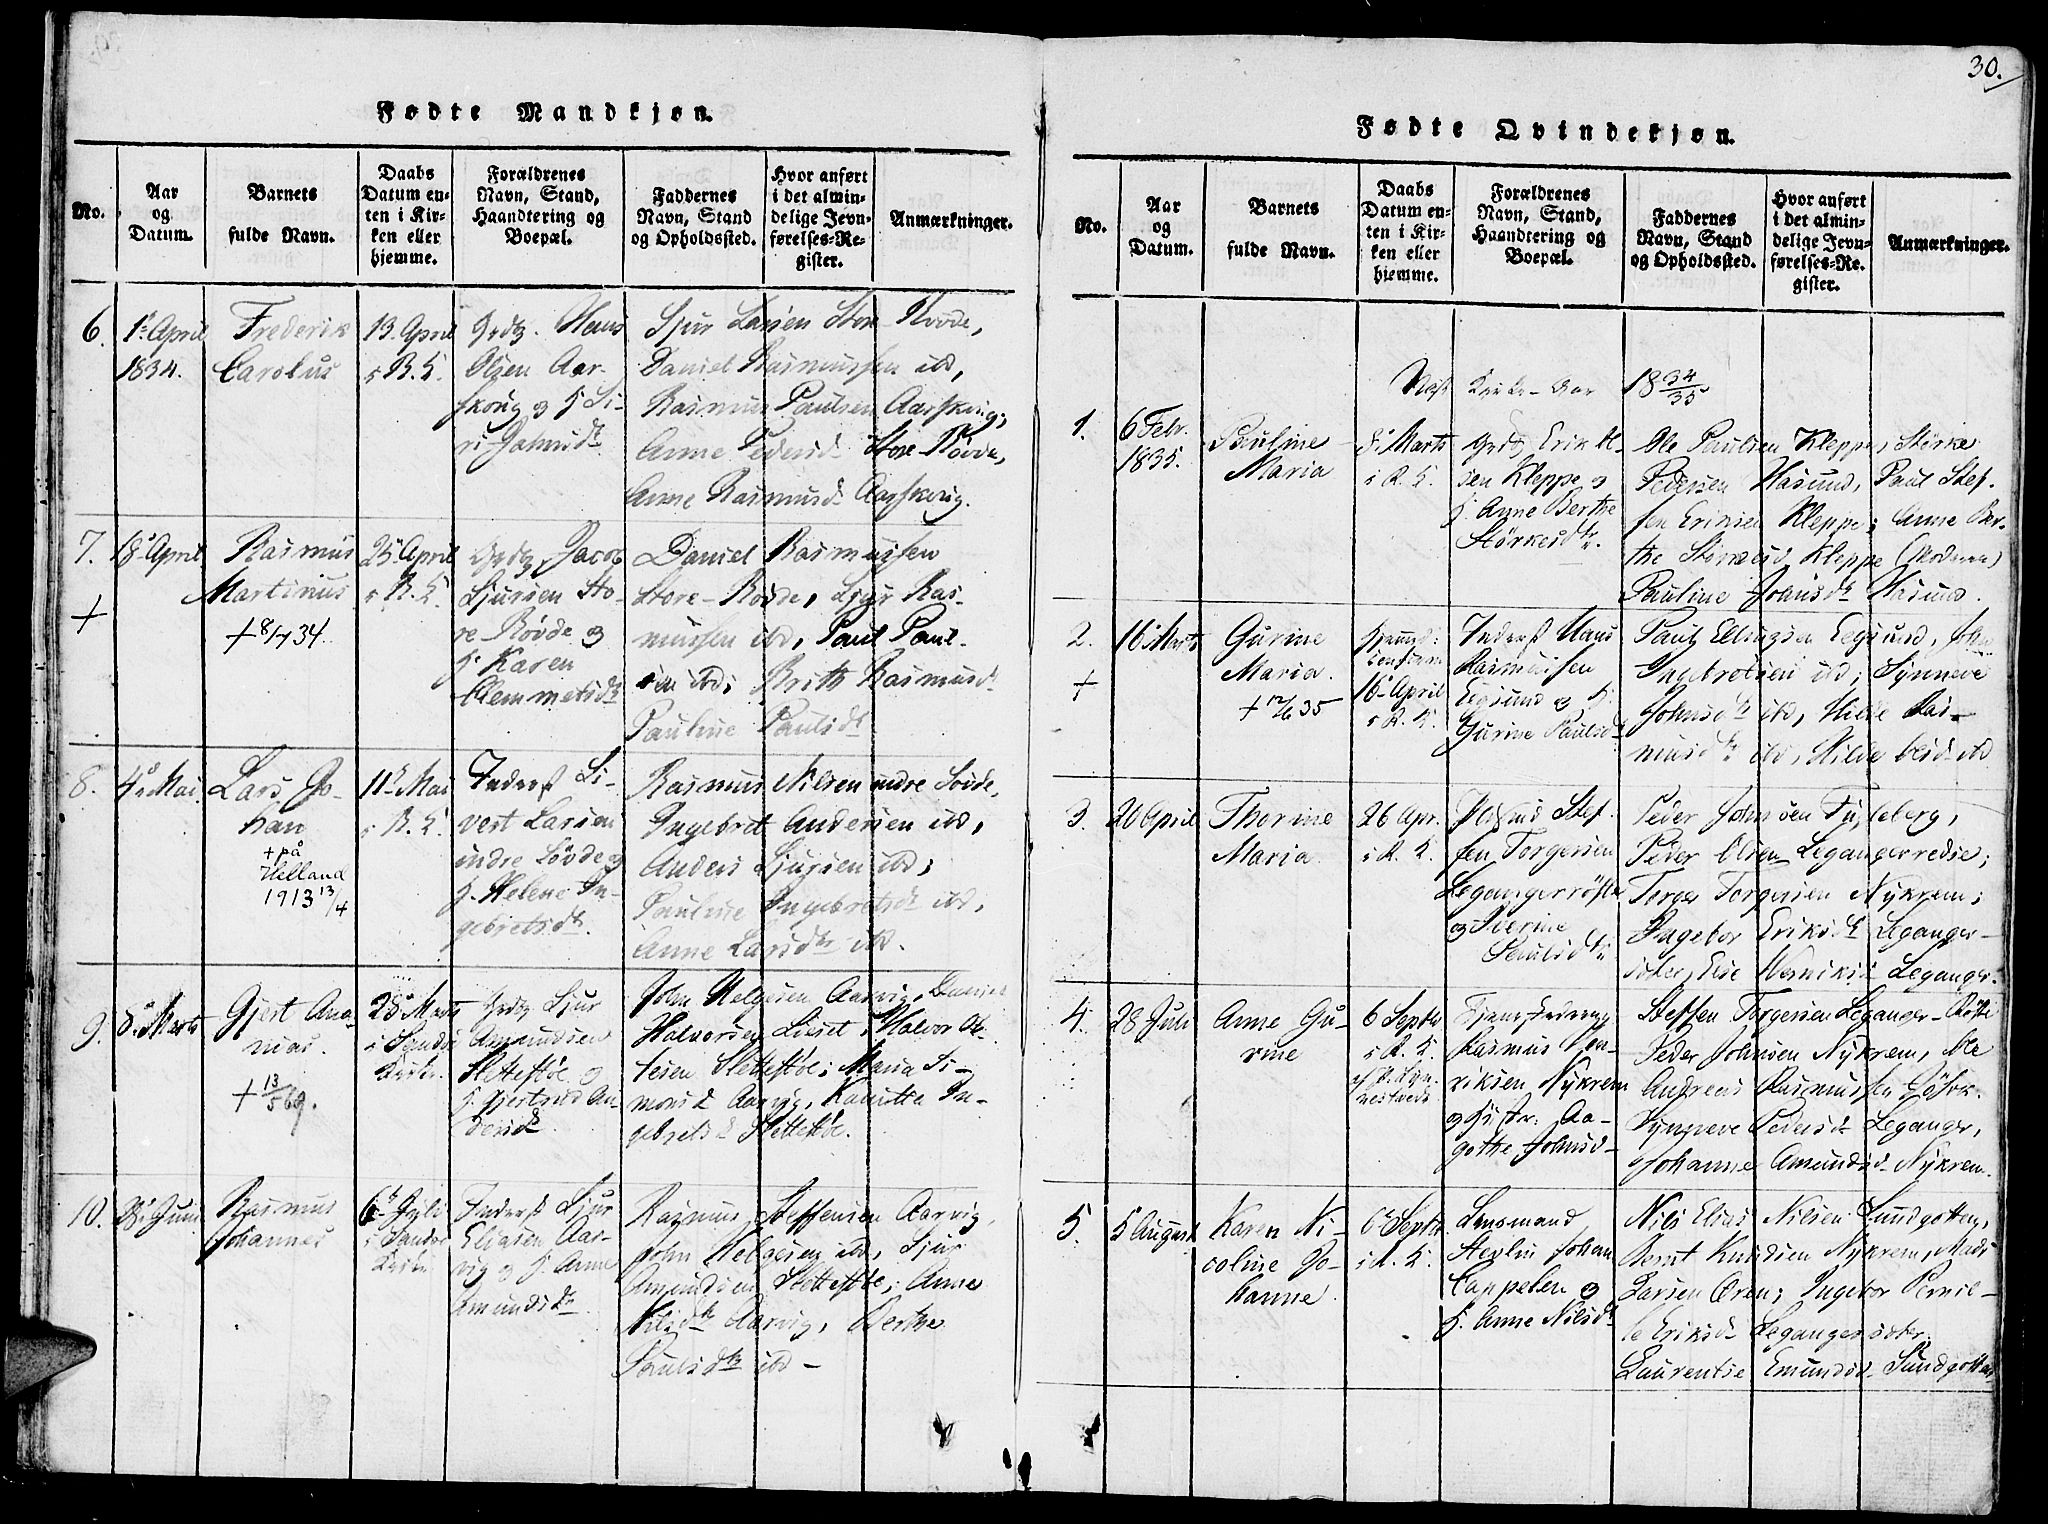 30.
Fødte Mandkjøn.
No.
Aar
og
Datum.
Barnets
fulde Navn.
Daabs
Datum en-
ten i Kir-
ken eller
hjemme.
Forældrenes
Navn, Stand,
Haandtering og
Boepæl.
Faddernes
Navn, Stand
og Opholdssted.
Hvor anført
i det almin-
delige Jevn-
førelses-Re-
gister.
Anmærkninger.
6.
1 April
1834.
Frederik
Carolus
13 April
i R. K.
Grdg. Hans
Olsen Aar-
skoug og H. Si-
ri
Sjur Larsen Store-Røvde,
Daniel Rasmussen ibd,
Rasmus Paulsen Aarskoug;
Anne Pedersd. Store-Røvde,
Anne Rasmusd. Aarskoug.
7.
+
18 April
Rasmus
Martinus
+ 8/7 34.
25 April
i R. K.
Grdg. Jacob
Sjursen Sto-
re-Røvde og
H. Karen
Clemmetsdtr
Daniel Rasmussen
Store-Røvde, Sjur Ras-
mussen ibd, Paul Paul-
sen ibd; Brith Rasmusd.
Pauline Paulsdtr
8.
4 Mai
Lars Jo-
han
+ på
Helland
1913 13/4
11 Mai
i R. K.
Inderst Si-
vert Larsen
indre Søvde og
H. Helene In-
gebretsdtr.
Rasmus Nilsen indre Søvde,
Ingebret Andersen ibd,
Anders Sjursen ibd;
Pauline Ingebretsd. ibd,
Anne Larsdtr ibd.
9.
8 Marts
Gjert Ana-
nias.
+ 13/5 69.
28 Marts
i Sande
Kirke.
Grdg Sjur
Amundsen
Slettestøe og
H. Gjertrud An-
dersd.
John Helgesen Aarvig, Daniel
Halvorsen Liset, Halvor Ol-
Slettestøe; Maria Si-
monsd Aarvig, In-
gebretsd Slettestøe.
10.
Juni
Rasmus
Johannes
6 Juli
i Sande
Kirke
Inderst Sjur
Eliasen Aar-
vig og H. Anne
Amundsdtr
Rasmus Steffensen Aarvig,
John Helgesen ibd, Sjur
Amundsen Slettestøe; Anne
Nilsdtr Aarvig, Berthe
Paulsdtr ibd –
Fødte Qvindekjøn.
No.
Aar
og
Datum.
Barnets
fulde Navn.
Daabs
Datum en-
ten i Kir-
ken eller
hjemme.
Forældrenes
Navn, Stand,
Haandtering og
Boepæl.
Faddernes
Navn, Stand
og Opholdssted.
Hvor anført
i det almin-
delige Jevn-
førelses-Re-
gister.
Anmærkninger.
Kirke-Aar 18 34/35
1.
6 Febr.
1835.
Pauline
Maria
8 Marts
i R. K.
Grdg Erik Ol-
sen Kleppe og
H. Anne Berthe
Størkesdtr.
Ole Paulsen Kleppe, Størke
Pedersen Hasund, Paul Stef-
fen Eriksen Kleppe; Anne Ber-
the Størkesd Kleppe (Moderen)
Pauline Johnsd. Hasund.
2.
+
16 Marts
Gurine
Maria.
+ 12/6 35
16 April
i R. K.
Inderst Hans
Rasmussen
Eegsund og H.
Gurine Paulsdtr
Paul Ellingsen Eegsund,
Ingebretsen ibd; Synneve
Johnsdtr ibd, Hilde Ras-
musdtr ibd, Hilde ibd
3.
20 April
Thorine
Maria.
26 Apr.
i R. K.
Stef-
fen Torgersen
Legangerrøste
og Sverine
Peder Johnsen
Peder Olsen
Torger Torgersen Nykrem;
Ingebor Eriksdtr Leganger-
Else Leganger-
4.
28 Juli
Anne Gu-
rine
6 Septbr
i R. K.
Rasmus Hen-
riksen Nykrem
og Aa-
gothe Johnsd-
Steffen Torgersen Leganger-Røste
Peder Johnsen Nykrem, Ole
Andreas Rasmussen
Synneve Pedersd. Leganger,
Johanne Amundsd. Nykrem.
5.
5 August
Karen Ni-
coline Jo-
hanne.
6 Septbr
i R. K.
Lensmand
Johan
Cappelen og
H. Anne Nilsdtr
Nils Elias Nilsen Sundgotten,
Bernt Knudsen Nykrem, Mads
Larsen Øren; Ingebor Pernil-
le Eriksd. Leganger
Laurentse Emundsd. Sundgotten